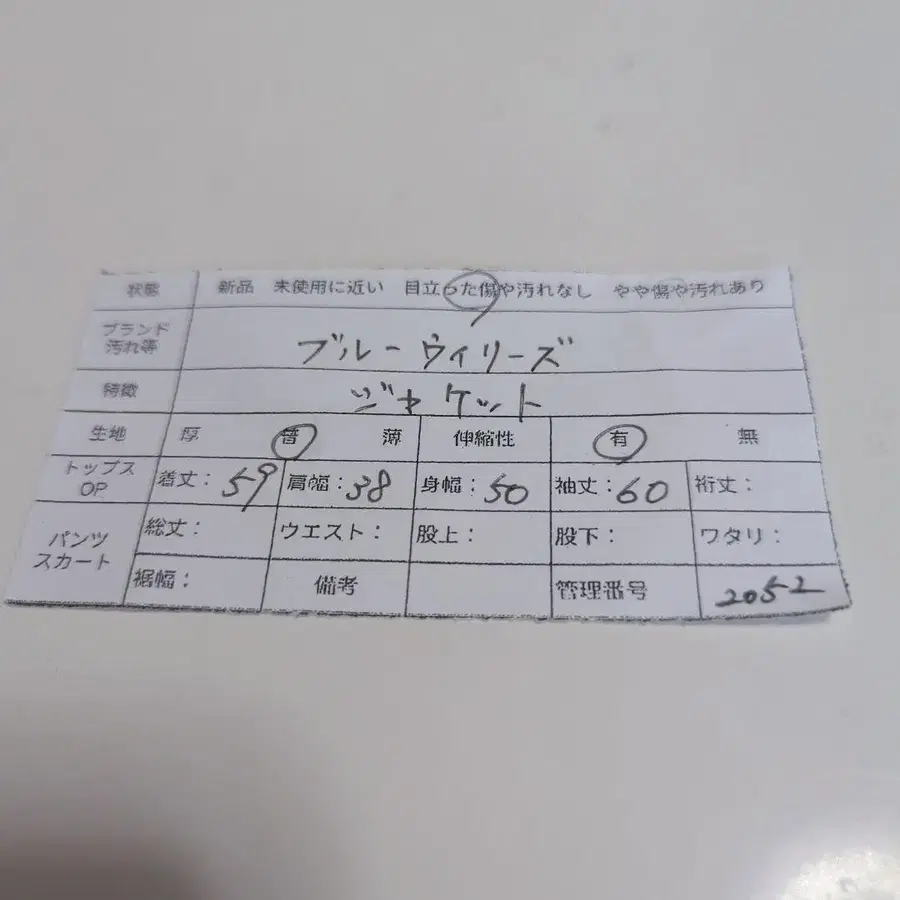 状態 新品 未使用に近い 目立った傷や汚れなし やや傷や汚れあり
ブランド
汚れ等 ブルーウィリーズ
特徴 ジャケット
生地 厚 普 薄 伸縮性 有 無
トップス
OP 着丈：59 肩幅：38 身幅：50 袖丈：60 裄丈：
パンツ
スカート 総丈： ウエスト： 股上： 股下： ワタリ：
裾幅： 備考 管理番号 2052